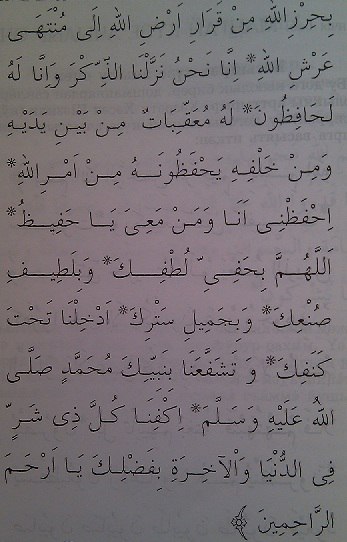 بِحِرْزِاللهِ مِنْ قَرَارِ اَرْضِ اللهِ اِلَى مُنْتَهَى
عَرْشِ اللهِ * اِنَّا نَحْنُ نَزَّلْنَا الذِّكْرَ وَاِنَّا لَهُ
لَحَافِظُونَ * لَهُ مُعَقِّبَاتٌ مِنْ بَيْنِ يَدَيْهِ
وَمِنْ خَلْفِهِ يَحْفَظُونَهُ مِنْ اَمْرِاللهِ *
اِحْفَظْنِى اَنَا وَمَنْ مَعِىَ يَا حَفِيظُ *
اَللَّهُمَّ بِحَفِىِّ لُطْفِكَ * وَبِلَطِيفِ
صُنْعِكَ * وَبِجَمِيلِ سَتْرِكَ * اَدْخِلْنَا تَحْتَ
كَنَفِكَ * وَ تَشَفَّعْنَا بِنَبِيِّكَ مُحَمَّدٍ صَلَّى
اللهُ عَلَيْهِ وَسَلَّمَ * اِكْفِنَا كُلَّ ذِى شَرٍّ
فِى الدُّنْيَا وَاْلآخِرَةِ بِفَضْلِكَ يَا اَرْحَمَ
الرَّاحِمِينَ ﴾